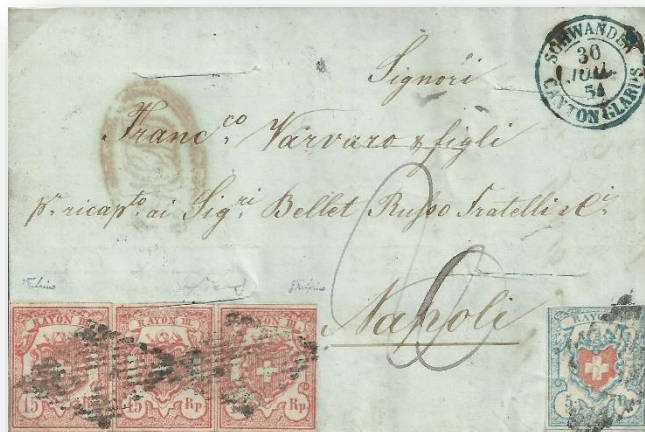 SCHWANDEN
30
JUIL
54
CANTON GLARUS
Signori
Franc.co Varvaro & figli
pr. ricapto ai Sigri Bellet Russo Fratelli & Ci
Napoli
RAYON III. RAYON III. RAYON III. RAYON
15 15 Rp Rp. 5